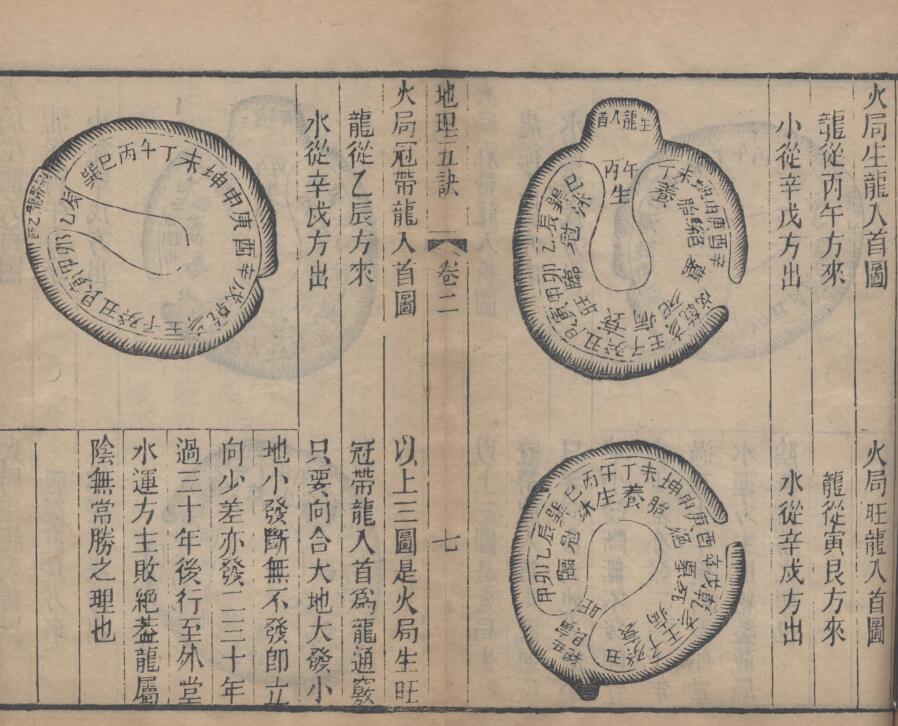 火局生龍入首圖
龍從丙午方來
小從辛戌方出
生龍入首
丙午
生
丁未坤申庚酉辛
養胎絕墓
戌乾亥壬子癸丑艮寅甲卯乙辰巽巳
死病衰旺臨冠沐
火局旺龍入首圖
龍從寅艮方來
水從辛戌方出
甲卯乙辰巽巳丙午丁未坤申庚酉辛戌乾亥壬子癸丑
臨冠沐生養胎絕墓死病衰旺
艮寅
地理五訣
卷二
七
火局冠帶龍入首圖
龍從乙辰方來
水從辛戌方出
乙辰巽巳丙午丁未坤申庚酉辛戌乾亥壬子癸丑艮寅甲卯
以上三圖是火局生旺
冠帶龍入首爲龍通竅
只要向合大地大發小
地小發斷無不發即立
向少差亦發二三十年
過三十年後行至外堂
水運方主敗絕葢龍屬
陰無常勝之理也